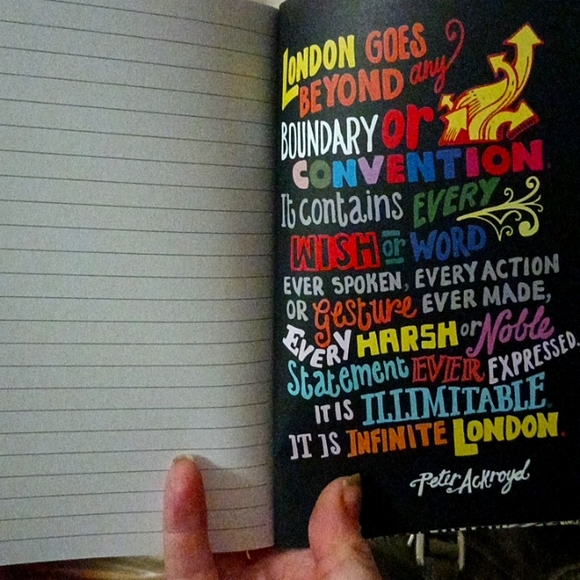 LONDON GOES
BEYOND any
BOUNDARY or
CONVENTION.
It contains EVERY
WISH or WORD
EVER SPOKEN, EVERY ACTION
OR Gesture EVER MADE,
EVERY HARSH or Noble
Statement EVER EXPRESSED.
IT IS ILLIMITABLE.
IT IS INFINITE LONDON.
Peter Ackroyd